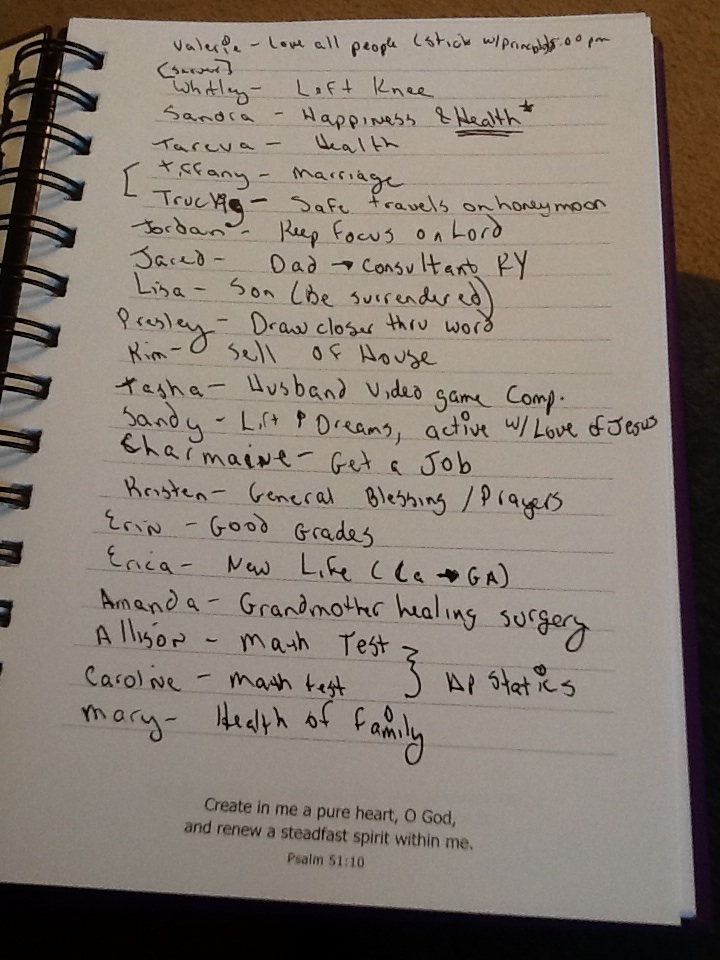 Valerie - Love all people (stick w/principls 5:00pm
[soccer]
Whitley - Left Knee
Sandra - Happiness & Health*
Tareva - Health
Tiffany - Marriage
Safe travels on honeymoon
Jordan - Keep focus on Lord
Jared - Dad → Consultant KY
Lisa - Son (Be surrendered)
Presley - Draw closer thru word
Kim - Sell of House
Tasha - Husband Video game Comp.
Sandy - Lift ↑ Dreams, active w/ Love of Jesus
Charmaine - Get a Job
Kristen - General Blessing / Prayers
Erin - Good Grades
Erica - New Life (Ca → GA)
Amanda - Grandmother healing surgery
Allison - Math Test
Caroline - math test } AP Statics
Mary - Health of family
Create in me a pure heart, O God,
and renew a steadfast spirit within me.
Psalm 51:10